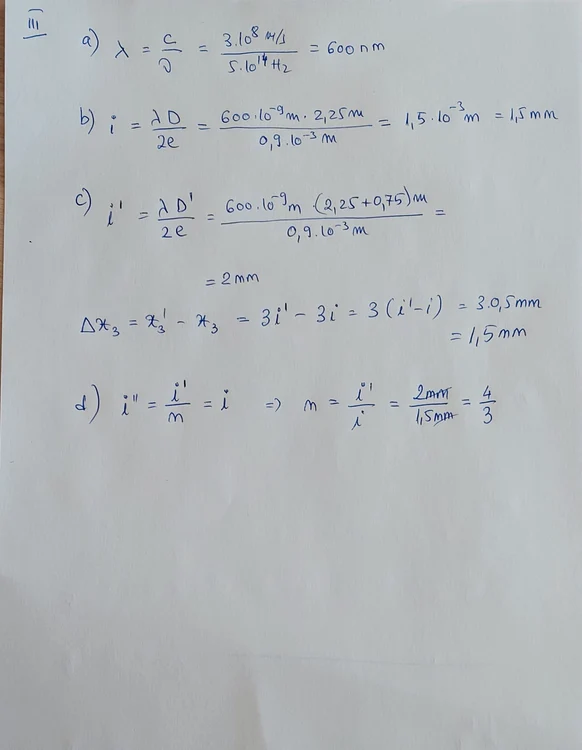 III
a) λ = c/ν = 3.10⁸ m/s / 5.10¹⁴ Hz = 600 nm
b) i = λD/2e = 600.10⁻⁹ m · 2,25 m / 0,9.10⁻³ m = 1,5.10⁻³ m = 1,5 mm
c) i' = λD'/2e = 600.10⁻⁹ m · (2,25+0,75) m / 0,9.10⁻³ m =
= 2 mm
Δx₃ = x₃' − x₃ = 3i' − 3i = 3(i'−i) = 3.0,5 mm
= 1,5 mm
d) i'' = i'/n = i ⇒ n = i'/i = 2mm/1,5mm = 4/3